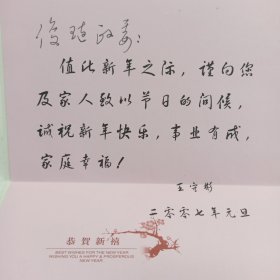 俊琏政委：
值此新年之际，谨向您
及家人致以节日的问候，
诚祝新年快乐，事业有成，
家庭幸福！
王守彬
二零零七年元旦
恭賀新禧
BEST WISHES FOR THE NEW YEAR
WISHING YOU A HAPPY & PROSPEROUS
NEW YEAR